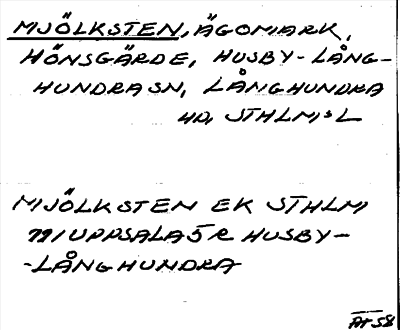 MJÖLKSTEN, ÄGOMARK,
HÖNSGÄRDE, HUSBY-LÅNG-
HUNDRA SN, LÅNGHUNDRA
HD, STHLMS L
MJÖLKSTEN EK STHLM
111 UPPSALA 5 R HUSBY-
-LÅNGHUNDRA
58